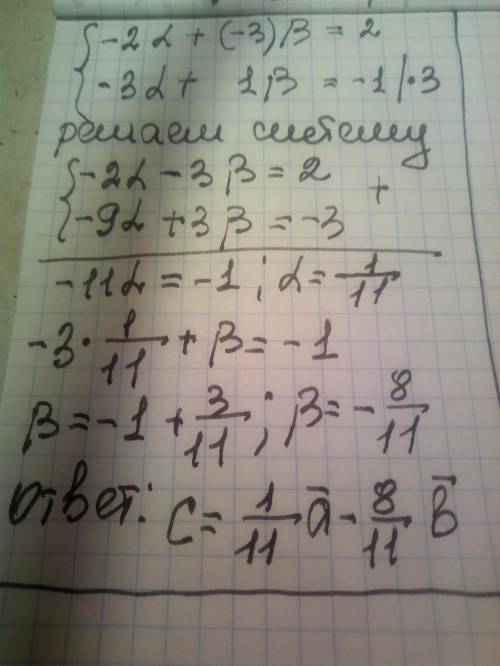 {-2α + (-3)β = 2
-3α + 1β = -1 |·3
решаем систему
{-2α - 3β = 2 +
-9α + 3β = -3
-11α = -1 ; α = 1/11
-3 · 1/11 + β = -1
β = -1 + 3/11 ; β = - 8/11
Ответ: C = 1/11 a̅ - 8/11 b̅